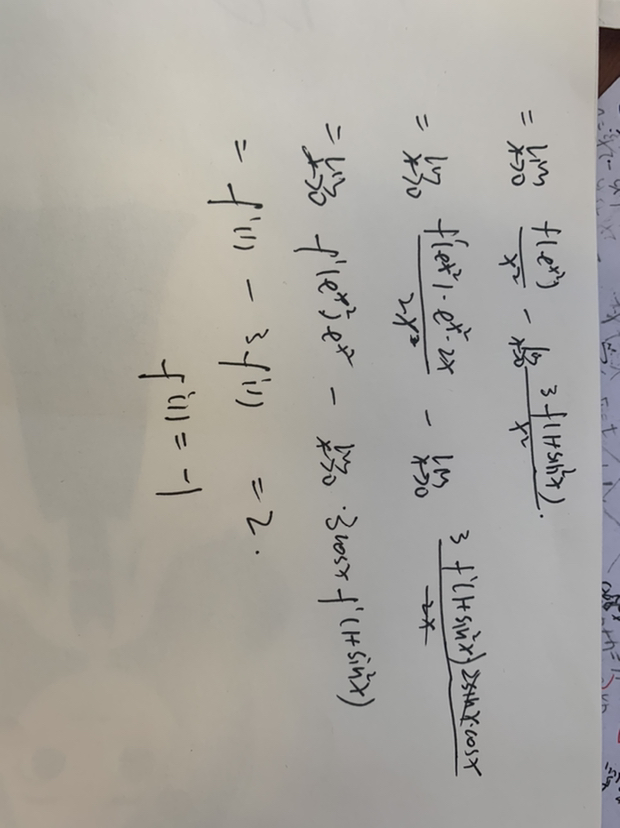 = lim x→0 f(e^x²)/x² − lim x→0 3f(1+sin²x)/x².
= lim x→0 f'(e^x²)·e^x²·2x/2x − lim x→0 3f'(1+sin²x)2sinx·cosx/2x
= lim x→0 f'(e^x²)·e^x² − lim x→0 ·3cosx f'(1+sin²x)
= f'(1) − 3f'(1) = 2.
f'(1) = −1